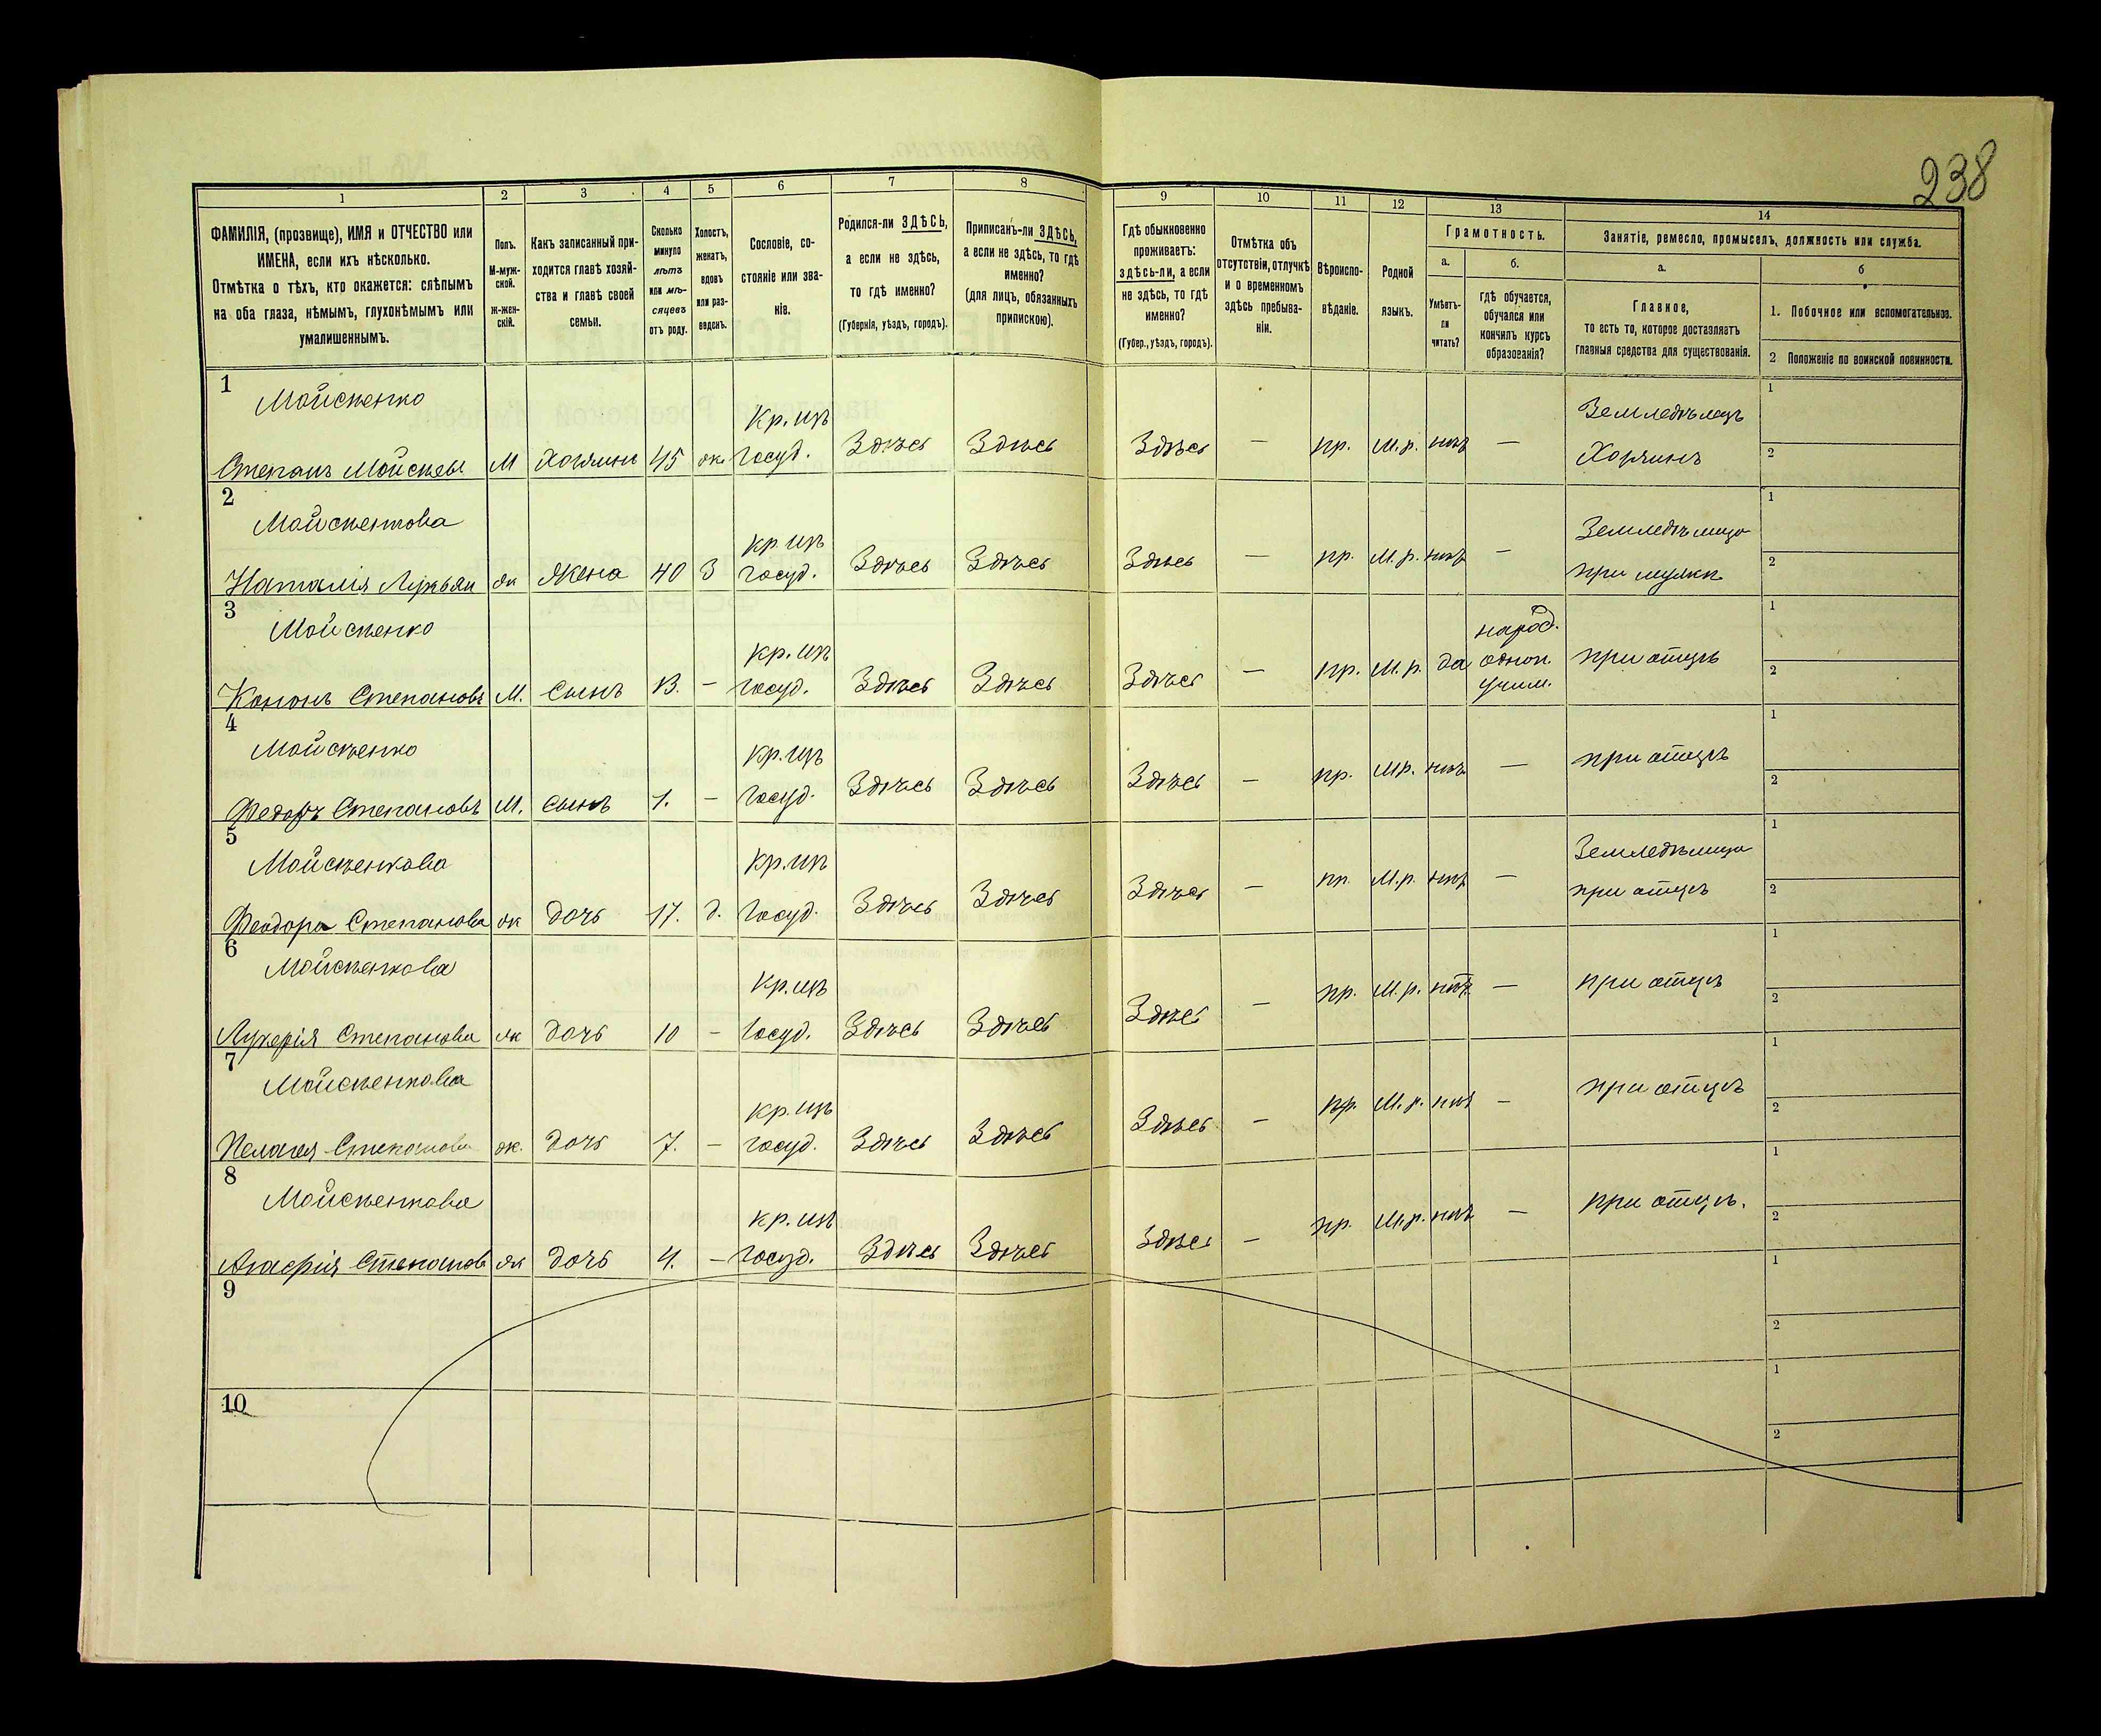 238
1 2 3 4 5 6 7 8 9 10 11 12 13 14
ФАМИЛІЯ, (прозвище), ИМЯ и ОТЧЕСТВО или
ИМЕНА, если ихъ нѣсколько.
Отмѣтка о тѣхъ, кто окажется: слѣпымъ
на оба глаза, нѣмымъ, глухонѣмымъ или
умалишеннымъ.
Полъ.
М-муж-
ской.
ж-жен-
скій.
Какъ записанный при-
ходится главѣ хозяй-
ства и главѣ своей
семьи.
Сколько
минуло
лѣтъ
или мѣ-
сяцевъ
отъ роду.
Холостъ,
женатъ,
вдовъ
или раз-
веденъ.
Сословіе, со-
стояніе или зва-
ніе.
Родился-ли ЗДѢСЬ,
а если не здѣсь,
то гдѣ именно?
(Губернія, уѣздъ, городъ).
Приписанъ-ли ЗДѢСЬ,
а если не здѣсь, то гдѣ
именно?
(для лицъ, обязанныхъ
припискою).
Гдѣ обыкновенно
проживаетъ:
здѣсь-ли, а если
не здѣсь, то гдѣ
именно?
(Губер., уѣздъ, городъ).
Отмѣтка объ
отсутствіи, отлучкѣ
и о временномъ
здѣсь пребыва-
ніи.
Вѣроиспо-
вѣданіе.
Родной
языкъ.
Грамотность.
а.
Умѣетъ-
ли
читать?
б.
гдѣ обучается,
обучался или
кончилъ курсъ
образованія?
Занятіе, ремесло, промыселъ, должность или служба.
а.
Главное,
то есть то, которое доставляетъ
главныя средства для существованія.
б
1. Побочное или вспомогательное.
2 Положеніе по воинской повинности.
1 Мойсѣенко Кр. цъ Земледѣлецъ 1
Степанъ Мойсѣевъ М Хозяинъ 45 ж. Госуд. Здѣсь Здѣсь Здѣсь — пр. М.р. нѣтъ — Хозяинъ 2
2 Мойсѣенкова кр. цъ Земледѣлица 1
Наталія Лукьян ж жена 40 З Госуд. Здѣсь Здѣсь Здѣсь — пр. М.р. нѣтъ — при мужѣ 2
3 Мойсѣенко кр. цъ народ. 1
Кононъ Степановъ М. сынъ 13. — Госуд. Здѣсь Здѣсь Здѣсь — пр. М.р. да однок. при отцѣ 2
учил.
4 Мойсѣенко кр. цъ 1
Федоръ Степановъ М. сынъ 1. — Госуд. Здѣсь Здѣсь Здѣсь — пр. М.р. нѣтъ — при отцѣ 2
5 Мойсѣенкова кр. цъ Земледѣлица 1
Феодора Степанова ж дочь 17. д. Госуд. Здѣсь Здѣсь Здѣсь — пр. М.р. нѣтъ — при отцѣ 2
6 Мойсѣенкова кр. цъ 1
Лукерія Степанова ж дочь 10 — Госуд. Здѣсь Здѣсь Здѣсь — пр. М.р. нѣтъ. — при отцѣ 2
7 Мойсѣенкова кр. цъ 1
Пелагея Степанова ж. дочь 7. — госуд. Здѣсь Здѣсь Здѣсь — пр. М.р. нѣтъ — при отцѣ 2
8 Мойсѣенкова кр. цъ 1
Агафія Степанов ж дочь 4. — Госуд. Здѣсь Здѣсь Здѣсь — пр. М.р. нѣтъ — при отцѣ. 2
9 1
2
10 1
2